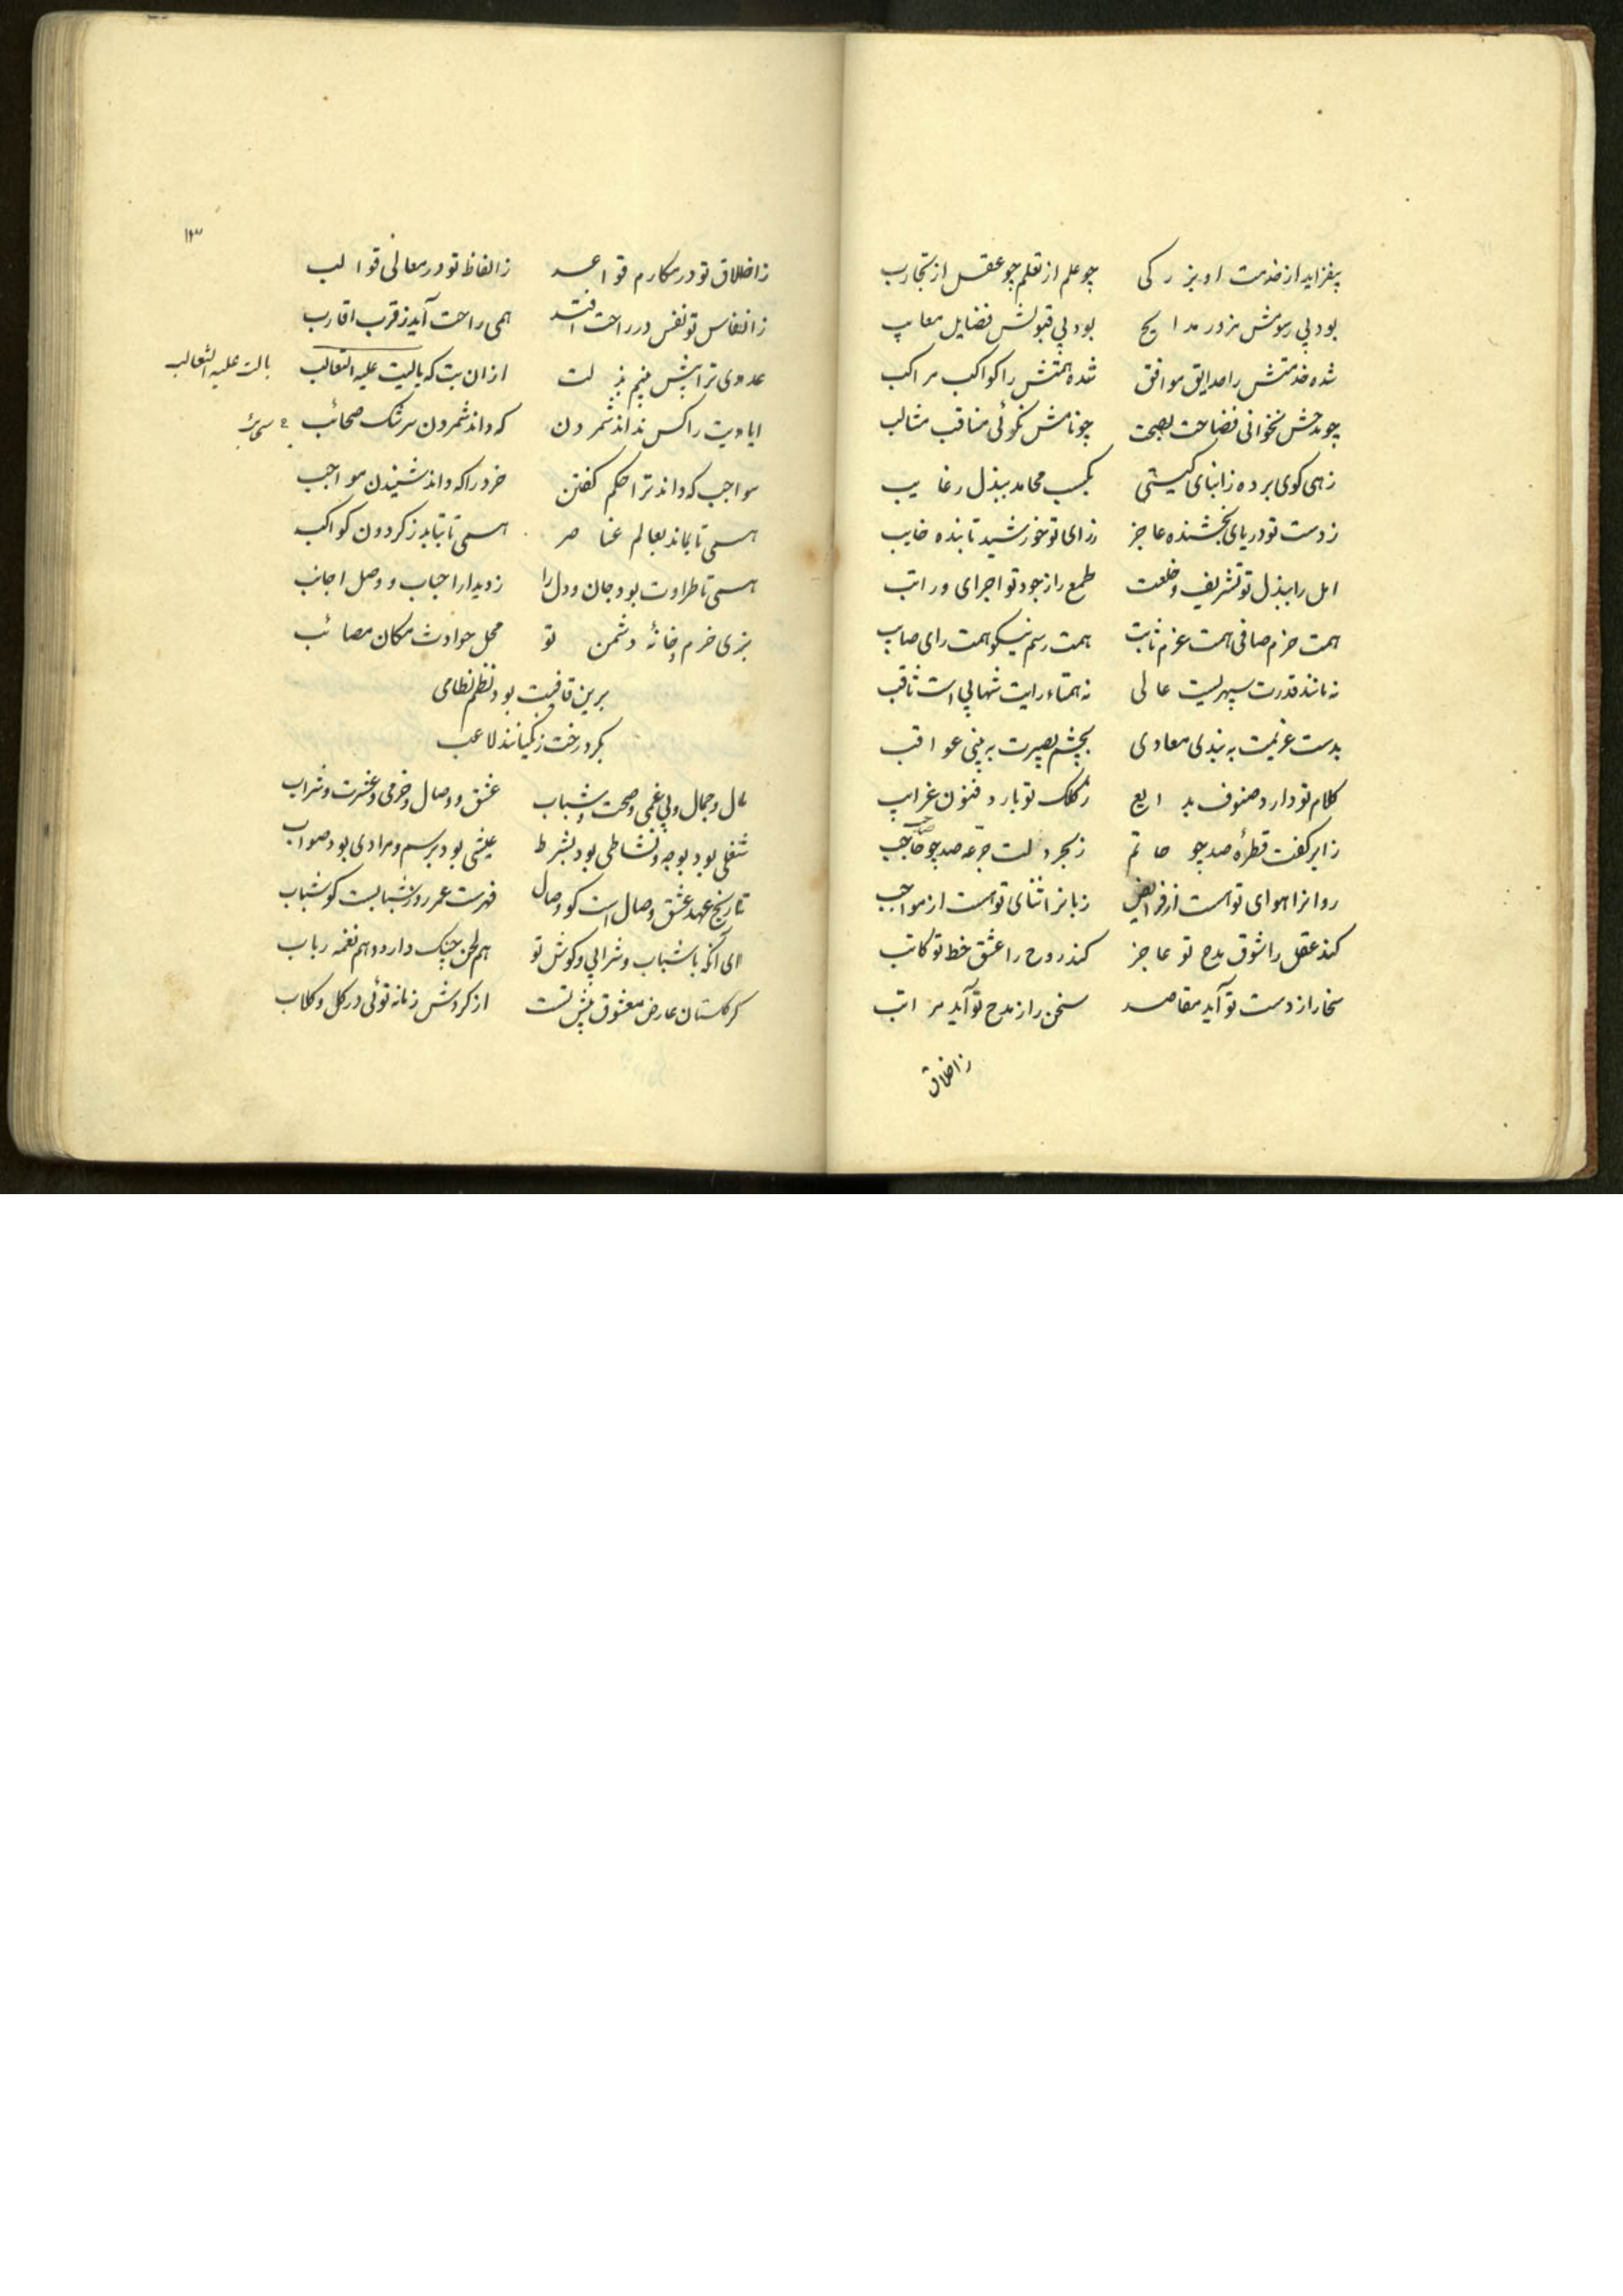 بیفزاید از خدمت او بزرکی چو علم از تعلم چو عقل از تجارب
بود بی رسومش مزور مدایح بود بی قبولش فضایل معایب
شده خدمتش را صدایق موافق شده همتش را کواکب مراکب
چو مدحش نخوانی فضاحت چو نامش نکوئی مناقب مثالب
زهی کوی برده ز ابنای کیتی بکسب محامد ببذل رغایب
ز دست تو دریای بخشنده عاجز ز رای تو خورشید تابنده خایب
امل را ببذل تو تشریف و خلعت طمع را ز جود تو اجرای و راتب
همت حزم صافی همت عزم ثابت همت رسم نیکو همت رای صایب
نه مانند قدرت سپهریست عالی نه همتاء رایت شهابی است ثاقب
بدست عزیمت به بندی معادی بچشم بصیرت به بینی عواقب
کلام تو دارد صنوف بدایع ز کلک تو بارد فنون غرایب
ز ابر کفت قطرهٔ صد چو حاتم ز بحر دلت جرعه صد چو صاحب
روانرا هوای تو هست از فرایض زبانرا ثنای تو هست از مواجب
کند عقل را شوق مدح تو عاجز کند روح را عشق خط تو کاتب
سخا را ز دست تو آید مقاصد سخن را ز مدح تو آید مراتب
ز اخلاق
۱۳
ز اخلاق تو در مکارم قواعد ز الفاظ تو در معالی قوالب
ز انفاس تو نفس در راحت افتد همی راحت آید ز قرب اقارب
عدوی ترا پیش بینم بذلت از ان بت که بالت علیه الثعالب
بالت علیه الثعالب
ایادیت را کس نداند شمردن که داند شمردن سرشک صحائب
مواجب که داند ترا حکم کفتن خرد را که داند شنیدن مواجب
همی تا بماند بعالم عناصر همی تا بتابد ز کردون کواکب
همی تا طراوت بود جان و دل را ز دیدار احباب و وصل اجانب
بزی خرم و خانهٔ دشمن تو محل حوادث مکان مصائب
برین قافیت بود نظم نظامی
بکرد رخت زنکیانند لاعب
مال و جمال و بی غمی و صحت و شباب عشق و وصال و خرمی و عشرت و شراب
شغلی بود بوجه و نشاطی بود بشرط عیشی بود برسم و مرادی بود صواب
تاریخ عهد عشق وصال است کو وصال فهرست عمر روز شبابست کو شباب
ای آنکه با شباب و شرابی و کوش تو هم لحن چنک دارد و هم نغمه رباب
کر کلستان عارض معشوق پیش تست از کردش زمانه توئی در کل و کلاب